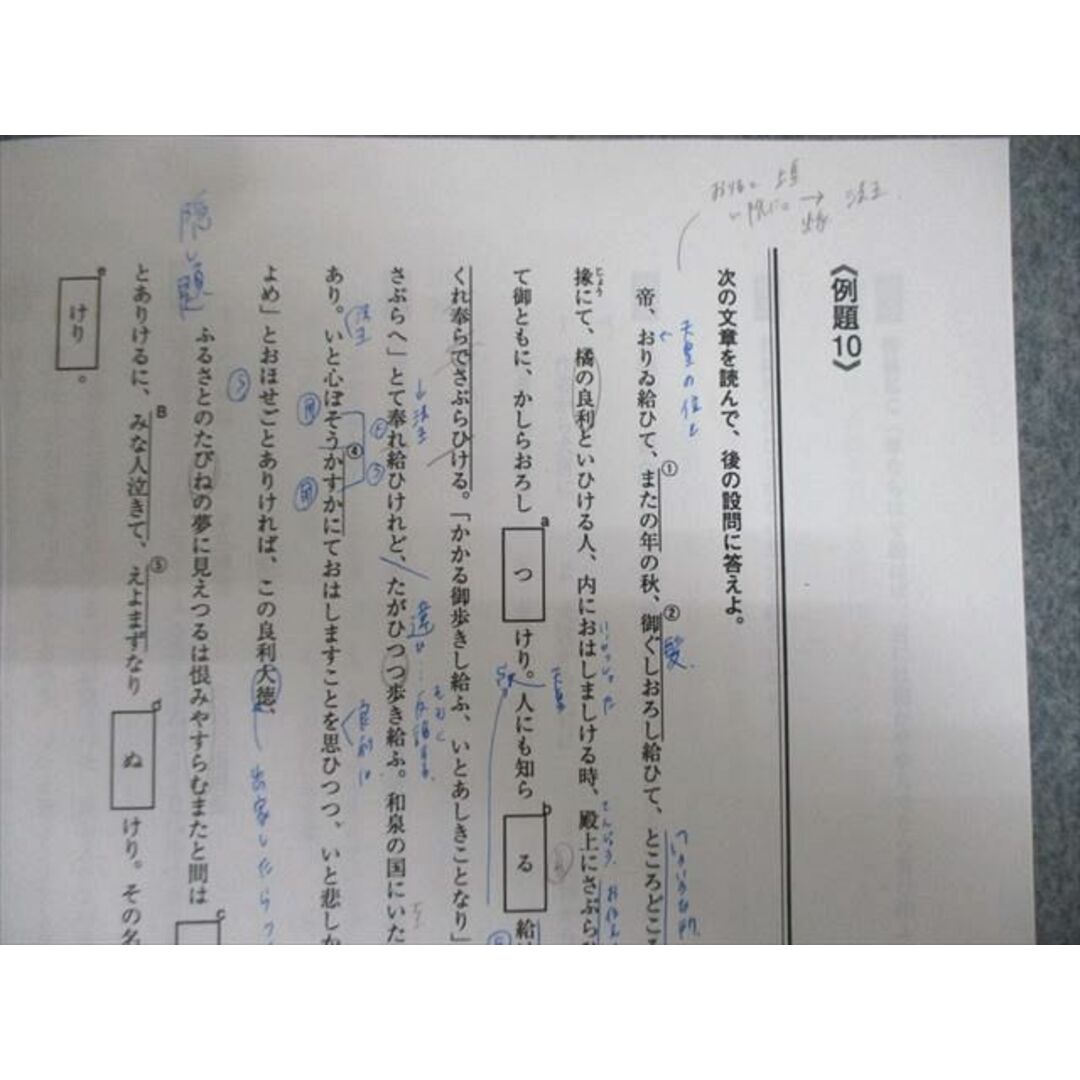 《例題10》
次の文章を読んで、後の設問に答えよ。
帝、おりゐ給ひて、またの年の秋、御ぐしおろし給ひて、ところどころ
① ②
掾にて、橘の良利といひける人、内におはしましける時、殿上にさぶら
じょう
て御ともに、かしらおろし つ けり。人にも知ら る 給
a b
くれ奉らでさぶらひける。「かかる御歩きし給ふ、いとあしきことなり」
さぶらへ」とて奉れ給ひけれど、たがひつつ歩き給ふ。和泉の国にいた
あり。いと心ぼそうかすかにておはしますことを思ひつつ、いと悲しか
④
よめ」とおほせごとありければ、この良利大徳、
ふるさとのたびねの夢に見えつるは恨みやすらむまたと問は
c
とありけるに、みな人泣きて、えよまずなり ぬ けり。その名
B ⑤ d
けり 。
e
天皇の位を
髪
いろいろな所
いらっしゃった
天皇
法王
↓法王
違い
良利は
隠し題